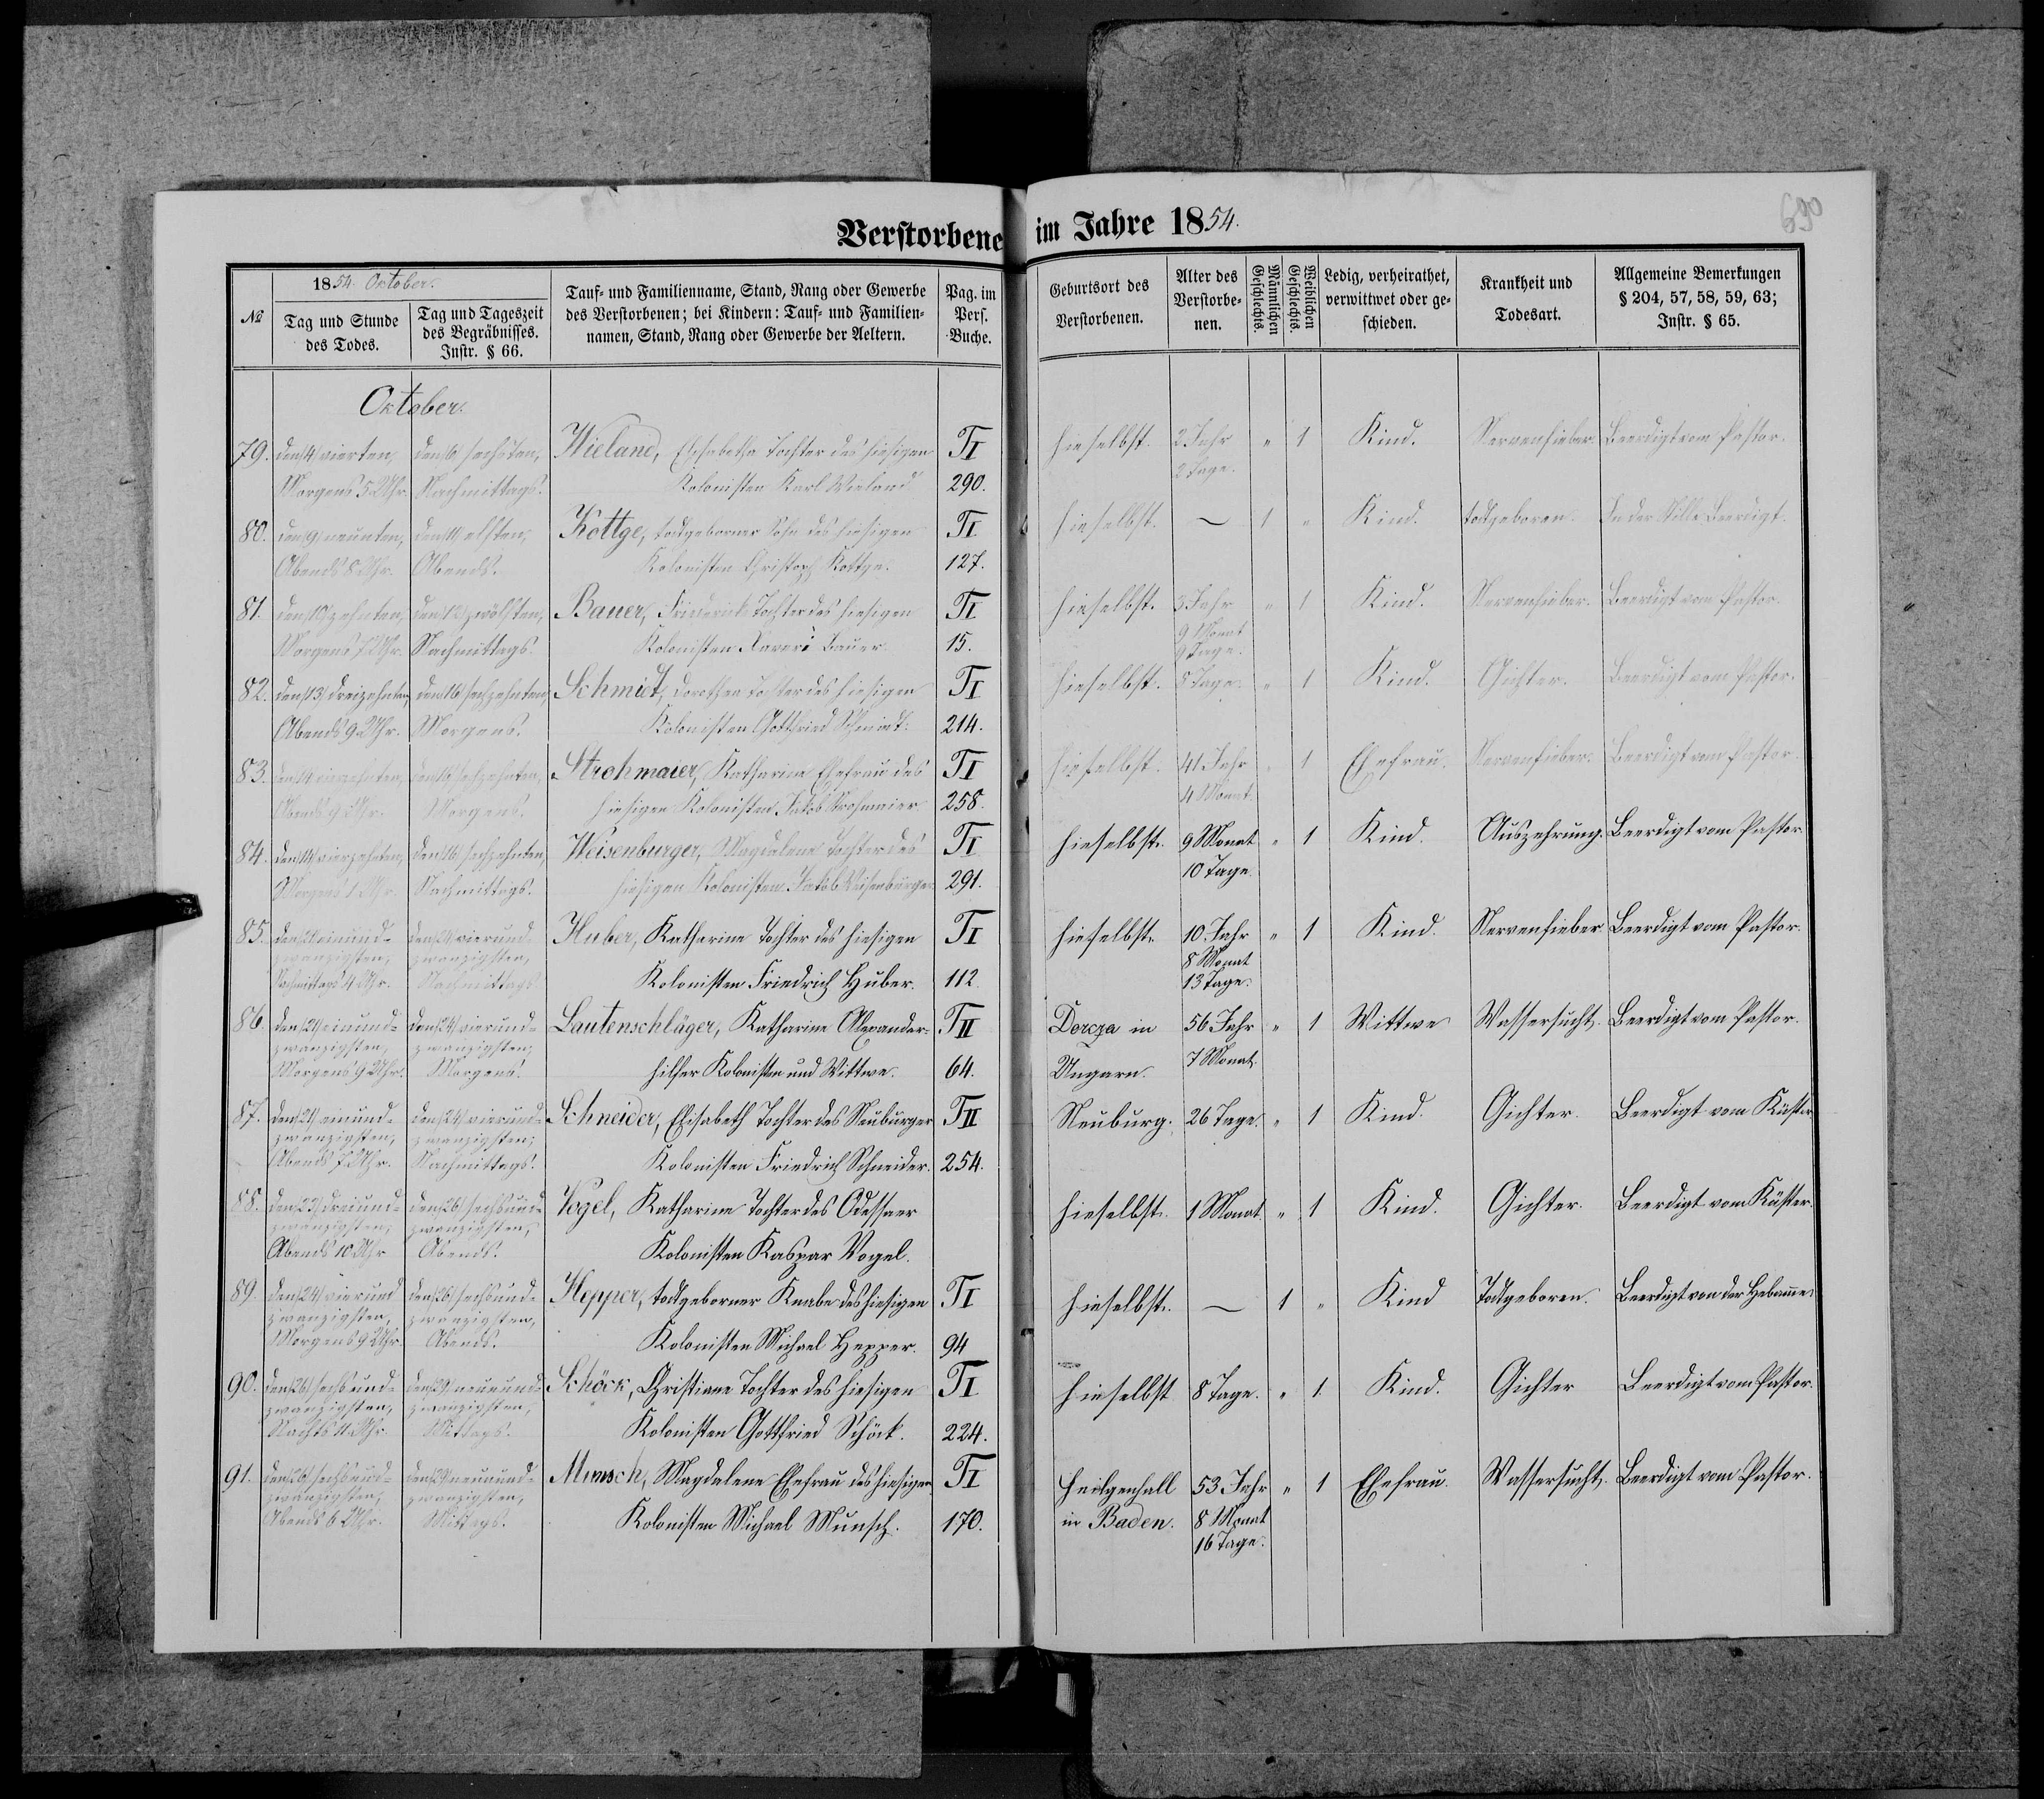 Verstorbene im Jahre 1854.
690
№
1854. October.
Tag und Stunde des Todes.
Tag und Tageszeit des Begräbnisses. Instr. § 66.
Tauf- und Familienname, Stand, Rang oder Gewerbe des Verstorbenen; bei Kindern: Tauf- und Familiennamen, Stand, Rang oder Gewerbe der Aeltern.
Pag. im Pers. Buche.
Geburtsort des Verstorbenen.
Alter des Verstorbenen.
Männlichen Geschlechts.
Weiblichen Geschlechts.
Ledig, verheirathet, verwittwet oder geschieden.
Krankheit und Todesart.
Allgemeine Bemerkungen § 204, 57, 58, 59, 63; Instr. § 65.
October.
79. den /4/ vierten, den /6/ sechsten, Wieland, Elisabetha Tochter des hiesigen TI hieselbst. 2 Jahr " 1 Kind. Nervenfieber. Beerdigt vom Pastor.
Morgens 5 Uhr. Nachmittags. Kolonisten Karl Wieland 290. 2 Tage.
80. den /9/ neunten, den /11/ elften, Kottge, todtgeborner Sohn des hiesigen TI hieselbst. — 1 " Kind. todtgeboren. In der Stille Beerdigt.
Abends 8 Uhr. Abends. Kolonisten Christoph Kottge. 127.
81. den /10/ zehnten, den /12/ zwölften, Bauer, Friederick Tochter des hiesigen TI hieselbst. 3 Jahr " 1 Kind. Nervenfieber. Beerdigt vom Pastor.
Morgens 7 Uhr. Nachmittags. Kolonisten Xaveri Bauer 15. 9 Monat
9 Tage.
82. den /13/ dreizehnten, den /16/ sechzehnten, Schmidt, Dorothea Tochter des hiesigen TI hieselbst. 8 Tage. " 1 Kind. Gichter. Beerdigt vom Pastor.
Abends 9 Uhr. Morgens. Kolonisten Gottfried Schmidt. 214.
83. den /14/ vierzehnten, den /16/ sechzehnten, Strohmaier, Katharina Ehefrau des TI hieselbst. 41 Jahr " 1 Ehefrau. Nervenfieber. Beerdigt vom Pastor.
Abends 9 Uhr. Morgens. hiesigen Kolonisten Jakob Strohmaier 258. 4 Monat.
84. den /14/ vierzehnten, den /16/ sechzehnten, Weisenburger, Magdalena Tochter des TI hieselbst. 9 Monat " 1 Kind. Auszehrung. Beerdigt vom Pastor.
Morgens 1 Uhr. Nachmittags. hiesigen Kolonisten Jakob Weisenburger 291. 10 Tage.
85. den /21/ einund- den /24/ vierund- Huber, Katharina Tochter des hiesigen TI hieselbst. 10. Jahr " 1 Kind. Nervenfieber Beerdigt vom Pastor.
zwanzigsten, zwanzigsten, 8 Monat
Nachmittags 4 Uhr. Nachmittags. Kolonisten Friedrich Huber. 112. 13 Tage.
86. den /21/ einund- den /24/ vierund- Lautenschläger, Katharina Alexander- TII Dercza in 56 Jahr " 1 Wittwe Wassersucht. Beerdigt vom Pastor.
zwanzigsten, zwanzigsten,
Morgens 9 Uhr. Morgens. hilfer Kolonisten und Wittwe. 64. Ungarn. 7 Monat.
87. den /21/ einund- den /24/ vierund- Schneider, Elisabeth Tochter des Neuburger TII Neuburg. 26 Tage. " 1 Kind. Gichter. Beerdigt vom Küster.
zwanzigsten, zwanzigsten,
Abends 7 Uhr. Nachmittags. Kolonisten Friedrich Schneider. 254.
88. den /23/ dreiund- den /26/ sechsund- Vogel, Katharina Tochter des Odessaer hieselbst. 1 Monat. " 1 Kind. Gichter. Beerdigt vom Küster.
zwanzigsten, zwanzigsten,
Abends 10 Uhr Abends. Kolonisten Kaspar Vogel.
89. den /24/ vierund den /26/ sechsund- Hepper, todtgeborner Knabe des hiesigen TI hieselbst. — 1 " Kind Todtgeboren. Beerdigt von der Hebamme
zwanzigsten, zwanzigsten,
Morgens 9 Uhr Abends. Kolonisten Michael Hepper. 94
90. den /26/ sechsund- den /29/ neunund- Schöck, Christiana Tochter des hiesigen TI hieselbst 8 Tage. " 1. Kind. Gichter Beerdigt vom Pastor.
zwanzigsten, zwanzigsten,
Nachts 11 Uhr. Mittags. Kolonisten Gottfried Schöck. 224.
91. den /26/ sechsund- den /29/ neunund- Munsch, Magdalena Ehefrau des hiesigen TI Heilgenhall 53 Jahr " 1 Ehefrau. Wassersucht. Beerdigt vom Pastor.
zwanzigsten, zwanzigsten,
Abends 6 Uhr. Mittags. Kolonisten Michael Munsch. 170. in Baden. 8 Monat
16 Tage.